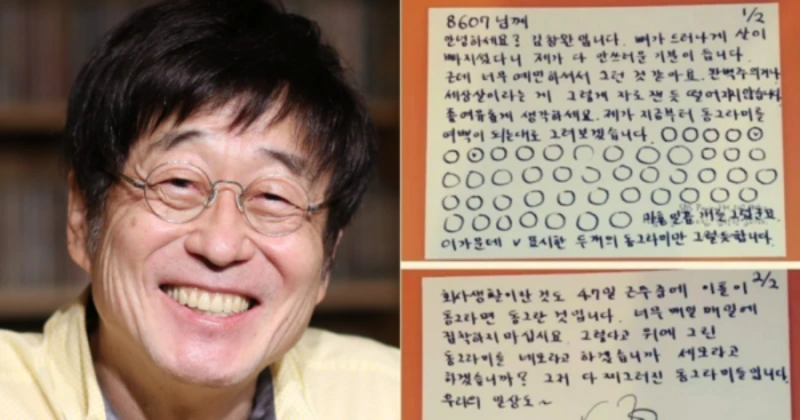 8607님께 1/2
안녕하세요? 김창완 입니다. 뼈가 드러나게 살이
빠지셨다니 제가 다 안쓰러운 기분이 듭니다.
근데 너무 예민하셔서 그런 것 같아요. 완벽주의거나
세상살이라는 게 그렇게 자로 잰 듯 떨어지지않습니다
좀 여유롭게 생각하세요. 제가 지금부터 동그라미를
여백이 되는대로 그려보겠습니다.
마흔 일곱 개를 그렸군요.
이 가운데 v 표시한 두개의 동그라미만 그럴듯합니다.
회사생활이란것도 47일 근무중에 이틀이 2/2
동그라면 동그란 것입니다. 너무 매일 매일에
집착하지 마십시요. 그렇다고 위에 그린
동그라미를 네모라고 하겠습니까 세모라고
하겠습니까? 그저 다 찌그러진 동그라미들입니다
우리의 일상도~